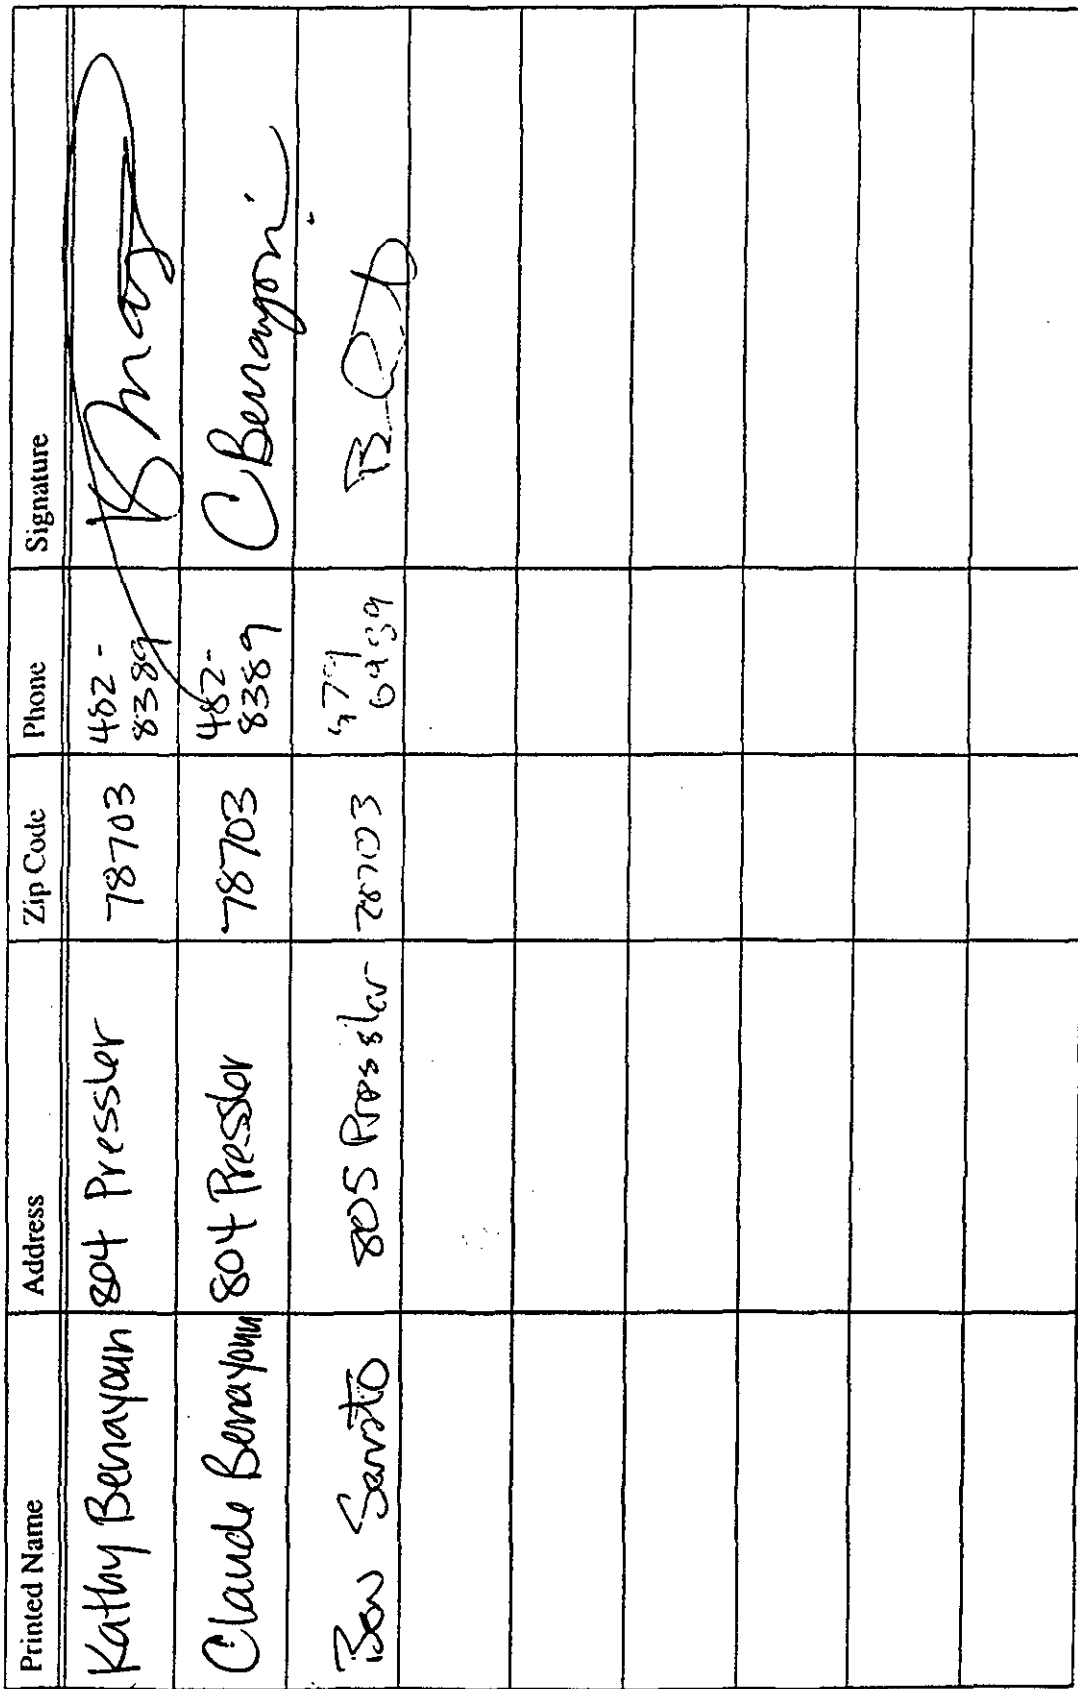 Printed Name Address Zip Code Phone Signature
Kathy Benayoun 804 Pressler 78703 482-
8389
Claude Benayoun 804 Pressler 78703 482-
8389 C Benayoun
805 Pressler 78703
6439